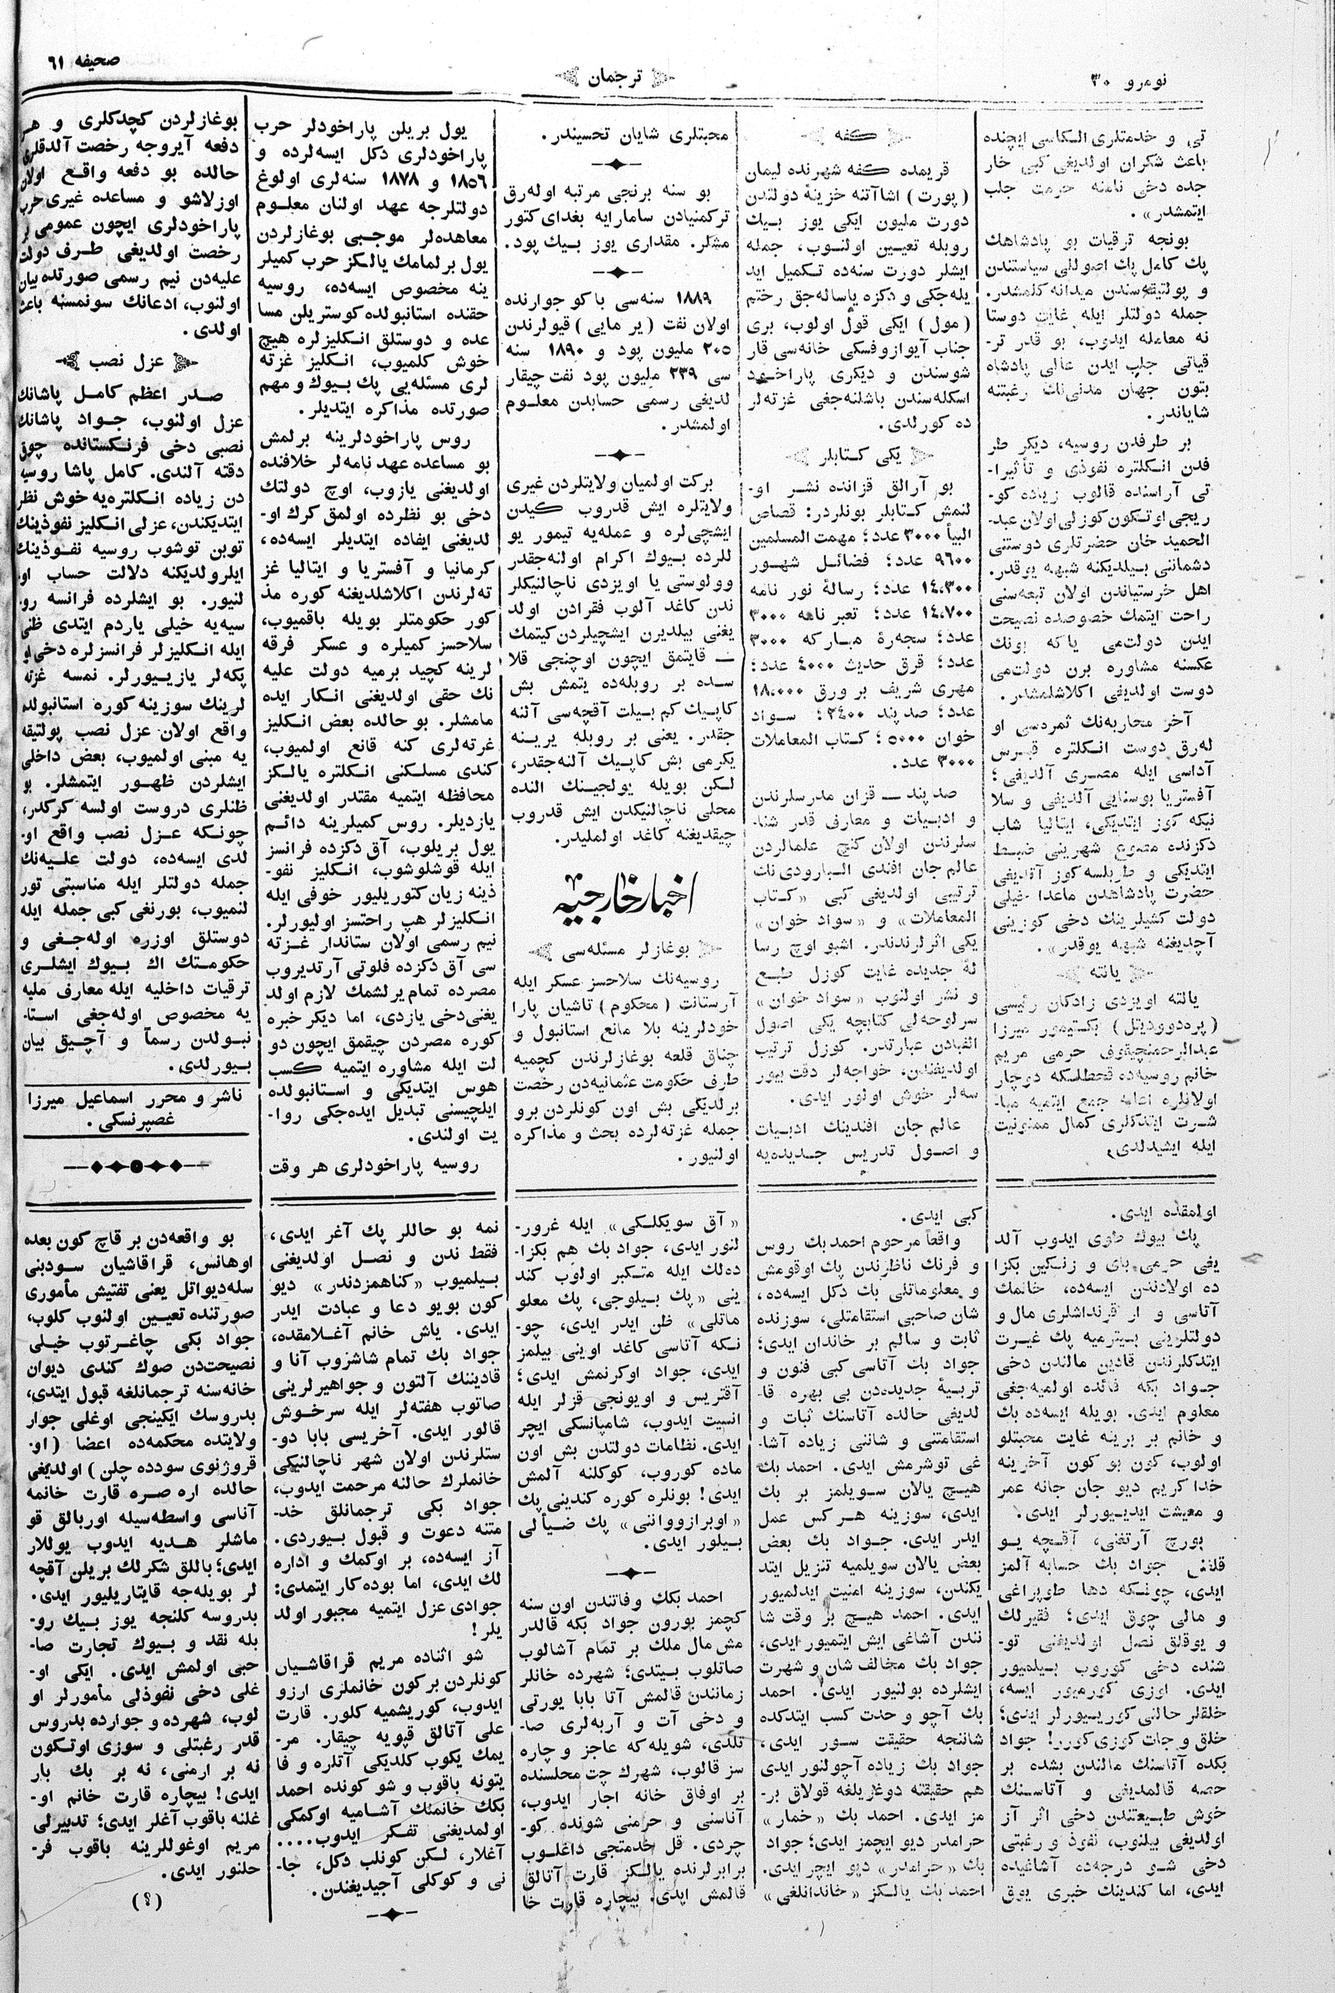 نومرو ٣٠
ترجمان
صحیفه ٦١
تی و خدمتلری الـکاسی ایچنده
باعث شکران اولدیغی کبی خار
جده دخی نامنه حرمت جلب
ایتمشدر».
بونجه ترقیات بو پادشاهك
پك کامل پك اصولنی سیاستندن
و پولتیقه‌سندن میدانه کلمشدر.
جمله دولتلر ایله غایت دوستا
نه معامله ایدوب، بو قدر تر-
قیاتی جلب ایدن عالی پادشاه
بتون جهان مدنی‌نك رغبتنه
شایاندر.
بر طرفدن روسیه، دیکر طر
فدن انـکلتره نفوذی و تأثیرا-
تی آراسنده قالوب زیاده کو-
ریجی اوتـکون کوزلی اولان عبد-
الحمید خان حضرتلری دوستنی
دشماننی بـیلدیکنه شبهه یوقدر.
اهل خرستیاندن اولان تبعه‌سنی
راحت ایتمك خصوصده نصیحت
ایدن دولت‌می یا‌که بونك
عکسنه مشاوره برن دولت‌می
دوست اولدیغی اکلاشلمشدر.
آخر محاربه‌نك ثمره‌سی او
له‌رق دوست انـکلتره قبرس
آداسی ایله مصری آلدیغی؛
آفستریا بوسنایی آلدیغی و سلا
نیکه کوز ایتدیکی، ایتالیا شاب
دکزنده مصوع شهرینی ضبـط
ایتدیکی و طربلسه کوز آتدیغی
حضرت پادشاهدن ماعدا خیلی
دولت کشیلرینك دخی کوزینی
آچدیغنه شبهه یوقدر».
یالته
یالته اویزدی زادکان رئیسی
(پره‌دوودیتل) بکتیمور میرزا
عبدالرحمنچیقوف حرمی مریم
خانم روسیه‌ده قحطلـکه دوچار
اولانلره اعانه جمع ایتمیه مبا-
شرت ایتدکلری کمال ممنونیت
ایله ایشیدلدی.
کفه
قریمده کفه شهرنده لیمان
(پورت) انشاآتنه خزینهٔ دولتدن
دورت ملیون ایکی یوز بـیك
روبله تعیین اولنـوب، جمله
ایشلر دورت سنه‌ده تـکمیل اید
یله‌جکی و دکزه یاساله‌جق رختم
(مول) ایکی قول اولوب، بری
جناب آیوازوفسکی خانه‌سی قار
شوسندن و دیکری پاراخـود
اسکله‌سندن باشلنه‌جغی غزته‌لر
ده کورلدی.
یکی کـتابلر
بو آرالق قزانده نشـر او-
لنمش کـتابلر بونلردر: قصاص
البیأ ٣٠٠٠ عدد؛ مهمت المسلمین
٩٦٠٠ عدد؛ فضائـل شهـور
١٤،٣٠٠ عدد؛ رسالهٔ نور نامه
١٤،٧٠٠ عدد؛ تعبر نامه ٣٠٠٠
عدد؛ سجهرهٔ مبارکه ٣٠٠٠
عدد؛ قرق حدیث ٤٠٠٠ عدد؛
مهری شریف بر ورق ١٨،٠٠٠
عدد؛ صد پند ٢٤٠٠؛ سـواد
خوان ٥٠٠٠؛ کـتاب المعاملات
٣٠٠٠ عدد.
صد پند — قزان مدرسلرندن
و ادبـیات و معارف قدر شنا-
سلرندن اولان کنچ علمالردن
عالم جان افندی الـبارودی‌نك
ترتیبی اولدیغی کبی «کـتاب
المعاملات» و «سواد خوان»
یکی اثرلرندندر. اشبو اوچ رسا
لهٔ جدیده غایت کوزل طبـع
و نشر اولنوب «سواد خوان»
سرلوحه‌لی کتابچه یکی اصول
الفبادن عبارتدر. کوزل ترتیب
اولدیغندن، خواجه‌لر دقت بیور
سه‌لر خوش اولور ایدی.
عالم جان افندینك ادبـیات
و اصـول تدریس جـدیده‌یه
محبتلری شایان تحسیندر.
بو سنه برنجی مرتبه اوله‌رق
ترکمنیادن سامارایه بغدای کتور
مشلر. مقداری یوز بـیك پود.
١٨٨٩ سنه‌سی باکو جوارنده
اولان نفت (یر مایی) قیولرندن
٢٠٥ ملیون پود و ١٨٩٠ سنه
سی ٢٣٩ ملیون پود نفت چیقار
لدیغی رسمی حسابدن معلـوم
اولمشدر.
برکت اولمیان ولایتلردن غیری
ولایتلره ایش قدروب کـیدن
ایشچی‌لره و عمله‌یه تیمور یو
للرده بـیوك اکرام اولنه‌جقدر
وولوستی یا اویزدی ناچالنیکلر
ندن کاغد آلوب فقرادن اولد
یغنی بیلدیرن ایشچیلردن کیتمك
— قایتمق ایچون اوچنجی قلا
سده بر روبله‌ده یتمش بش
کاپیك کم بـیلت آقچه‌سی آلنه
جقدر. یعنی بر روبله یرینه
یکرمی بش کاپیك آلنه‌جقدر،
لـکن بویله یولجینـك النده
محلی ناچالنیکدن ایش قدروب
چیقدیغنه کاغد اولملیدر.
اخبار خارجیه
بوغازلر مسئله‌سی
روسیه‌نك سلاحسز عسکر ایله
آرستانت (محکوم) تاشیان پارا
خودلرینه بلا مانع استانبول و
چناق قلعه بوغازلرندن کچمیه
طرف حکومت عثمانیه‌دن رخصت
برلدیکی بش اون کونلردن برو
جمله غزته‌لرده بحث و مذاکره
اولنیور.
یول بریلن پاراخودلر حرب
پاراخودلری دکل ایسه‌لرده و
١٨٥٦ و ١٨٧٨ سنه‌لری اولوغ
دولتلرجه عهد اولنان معلـوم
معاهده‌لر موجبی بوغازلردن
یول برلمامك یالـکز حرب کمیلر
ینه مخصوص ایسه‌ده، روسیه
حقنده استانبولده کوستریلن مسا
عده و دوستلق انـکلیزلره هیچ
خوش کلمیوب، انـکلیز غزته
لری مسئله‌یی پك بـیوك و مهم
صورتده مذاکره ایتدیلر.
روس پاراخودلرینه برلمش
بو مساعده عهد نامه‌لر خلافنده
اولدیغنی یازوب، اوچ دولتك
دخی بو نظرده اولمق کرك او-
لدیغنی ایفاده ایتدیلر ایسه‌ده،
کرمانیا و آفستریا و ایتالیا غز
ته‌لرندن اکلاشلدیغنه کوره مذ
کور حکومتلر بویله باقمیوب،
سلاحسز کمیلره و عسکر فرقه
لرینه کچید برمیه دولت علیه
نك حقی اولدیغنی انـکار ایده
مامشلر. بو حالده بعض انکلیز
غزته‌لری کنه قانع اولمیوب،
کندی مسلـکنی انـکلتره یالـکز
محافظه ایتمیه مقتدر اولدیغنی
یازدیلر. روس کمیلرینه دائـم
یول بریلوب، آق دکزده فرانسز
ایله قوشلوشوب، انـکلیز نفو-
ذینه زیان کتوریلیور خوفی ایله
انـکلیزلر هپ راحتسز اولیورلر.
نیم رسمی اولان ستاندار غـزته
سی آق دکزده فلوتی آرتدیروب
مصرده تمام یرلشمك لازم اولد
یغنی دخی یازدی، اما دیکر خبره
کوره مصردن چیقمق ایچون دو
لت ایله مشاوره ایتمیه کـسب
هوس ایتدیکی و استـانبولده
ایلچیسنی تبدیل ایده‌جکی روا-
یت اولندی.
روسیه پاراخودلری هر وقت
بوغازلردن کچدکلری و هـر
دفعه آیروجه رخصت آلدقلری
حالده بو دفعه واقـع اولان
اوزلاشو و مساعده غیری حرب
پاراخودلری ایچون عمومی بر
رخصت اولدیغی طـرف دولت
علیه‌دن نیم رسمی صورتده بیان
اولنوب، ادعانك سونمسنه باعث
اولدی.
عزل نصب
صـدر اعظم کامـل پاشانك
عزل اولنوب، جـواد پاشانك
نصبی دخی فرنـکستانده چوق
دقته آلندی. کامل پاشا روسیه
دن زیاده انـکلتره‌یه خوش نظر
ایتدیکندن، عزلی انـکلیز نفوذینك
توبن توشوب روسیه نفـوذینك
ایلرولدیکنه دلالت حساب او
لنیور. بو ایشلرده فرانسه رو-
سیه‌یه خیلی یاردم ایتدی ظنی
ایله انـکلیزلر فرانسزلره دخی او
پکه‌لر یازیـیورلر. نمسه غزته
لرینك سوزینه کوره استانبولده
واقع اولان عزل نصب پولتیقه
یه مبنی اولمیوب، بعض داخلی
ایشلردن ظهـور ایتمشلر. بو
ظنلری دروست اولسه کرکدر،
چونـکه عـزل نصب واقع او-
لدی ایسه‌ده، دولت علـیه‌نك
جمله دولتلر ایله مناسبتی تور
لنمیوب، بورنغی کبی جمله ایله
دوستلق اوزره اوله‌جـغی و
حکومتـك اك بـیوك ایشلـری
ترقیات داخلیه ایله معارف ملیه
یه مخصوص اوله‌جغی استا-
نبولدن رسماً و آچیق بیان
بـیورلدی.
ناشر و محرر اسماعیل میرزا
غصپرنسکی.
اولمقده ایدی.
پك بیوك طوی ایدوب آلد
یغی حرمی بای و زنـکین بکزا
ده اولادندن ایسه‌ده، خانمك
آتاسی و ار قرنداشلری مال و
دولتلرینی بـیترمیه پك غیـرت
ایتدکلرندن قادین مالندن دخی
جـواد بکه فائده اولمیه‌جغی
معلوم ایدی. بویله ایسه‌ده بك
و خانم بر برینه غایت محبتلو
اولوب، کون بو کون آخرینه
خدا کریم دیو جان جانه عمر
و معیشت ایدیـیورلر ایدی.
بورچ آرتقنی، آقـچه یـو
قلغی جواد بك حسابه آلمز
ایدی، چونـکه دها طوپراغی
و مالی چوق ایدی؛ فقیرلك
و یوقلق نصل اولدیغنی تو-
شنده دخی کوروب بـیلمیور
ایدی. اوزی کورمیور ایسه،
خلقلر حالنی کوریـیورلر ایدی؛
خلق و جات کوزی کورر! جواد
بکده آتاسنك مالندن بشده بر
حصه قالمدیغی و آتاسنـك
خوش طبیعتندن دخی اثر آز
اولدیغی بیلنوب، نفوذ و رغبتی
دخی شـو درجه‌ده آشاغیده
ایدی، اما کندینك خبری یوق
کبی ایدی.
واقعاً مرحوم احمد بك روس
و فرنك ناظرندن پك اوقومش
و معلوماتلی بك دکل ایسه‌ده،
شان صاحبی استقامتلی، سوزنده
ثابت و سالم بر خاندان ایدی؛
جواد بك آتاسی کبی فنون و
تربـیهٔ جدیده‌دن بی بهره قا-
لدیغی حالده آتاسنك ثبات و
استقامتنی و شاننی زیاده آشا-
غی توشرمش ایدی. احمد بك
هیـچ یالان سـویلمز بر بك
ایدی، سوزینه هرکس عمل
ایدر ایدی. جـواد بك بعض
بعض یالان سویلمیه تنزیل ایتد
یکندن، سوزینه امنیت ایدلمیور
ایدی. احمد هیـچ بر وقت شا
نندن آشاغی ایش ایتمیور ایدی،
جواد بك مخالف شان و شهرت
ایشلرده بولنیور ایدی. احمد
بك آچو و حدت کسب ایتدکده
شانـنجه حقیقت سـور ایدی،
جواد بك زیاده آچولنور ایدی
هم حقیقته دوغریلغه قولاق بر-
مز ایدی. احمد بك «خمار»
حرامدر دیو ایچمز ایدی؛ جواد
بك «حرامدر» دیو ایچر ایدی.
احمد بك یالـکز «خاندانلغی»
«آق سویکلـکی» ایله غرور-
لنور ایدی، جواد بك هم بکزا-
ده‌لك ایله متـکبر اولوب کند
ینی «پك بـیلوجی، پك معلو
ماتلی» ظن ایدر ایدی، چو-
نـکه آتاسی کاغد اوینی بیلمز
ایدی، جواد اوکرنمش ایدی؛
آقتریس و اویونجی قزلر ایله
انسیت ایدوب، شامپانسکی ایچر
ایدی. نظامات دولتدن بش اون
ماده کوروب، کوکلنه آلمش
ایدی! بونلره کوره کندینی پك
«اوبرازوواننی» پك ضیـأ لی
بـیلور ایدی.
احمد بکك وفاتندن اون سنه
کچمز بورون جواد بکه قالدر
مش مال ملك بر تمام آشالوب
صاتلوب بـیتدی؛ شهرده خانلر
زمانندن قالمش آتا بابا یورتی
و دخی آت و آربه‌لری صا-
تلدی، شویله‌که عاجز و چاره
سز قالوب، شهرك چت محله‌سنده
بر اوفاق خانه اجار ایدوب،
آناسنی و حرمنی شونده کو-
چردی. قل خدمتجی داغلـوب
برابرلرنده یالـکز قارت آتالق
قالمش ایدی. بیچاره قارت خا
نمه بو حاللر پك آغر ایدی،
فقط ندن و نصل اولدیغنی
بـیلمیوب «کناهمزدندر» دیو
کون بویو دعا و عبادت ایدر
ایدی. یاش خانم آغـلامقده،
جواد بك تمام شاشزوب آنا و
قادیننك آلتون و جواهیرلرینی
صاتوب هفته‌لر ایله سرخـوش
قالور ایدی. آخریسی بابا دو-
ستلرندن اولان شهر ناچالنیکی
خانملرك حالنه مرحمت ایدوب،
جواد بکی ترجمانلق خد-
متنه دعوت و قبول بـیوردی.
آز ایسه‌ده، بر اوکمك و اداره
لك ایدی، اما بوده کار ایتمدی:
جوادی عزل ایتمیه مجبور اولد
یلر!
شو اثناده مریم قراقاشیان
کونلردن بر کون خانملری ارزو
ایدوب، کوریشمیه کلور. قارت
علی آتالق قپویه چیقار. مر-
یمك یکوب کلدیکی آتلره و فا
یتونه باقوب و شو کونده احمد
بکك خانمنك آشامیه اوکمکی
اولمدیغنی تفـکر ایدوب....
آغلار، لـکن کونلب دکل، جا-
نی و کوکلی آجیدیغندن.
بو واقعه‌دن بر قاچ کون بعده
اوهانس، قراقاشیان سـودبنی
سله‌دیواتل یعنی تفتیش مأموری
صورتنده تعیـین اولنوب کلوب،
جواد بکی چاغـرتوب خیلی
نصیحت‌دن صوك کندی دیوان
خانه‌سنه ترجمانلغه قبول ایتدی،
بدروسك ایکینجی اوغلی جوار
ولایتده محکمه‌ده اعضا (او-
قروژنوی سودده چلن) اولدیغی
حالده اره صـره قارت خانمه
آناسی واسطه‌سیله اوربالق قو
ماشلر هـدیه ایدوب یوللار
ایدی؛ باللق شکرلك بریلن آقچه
لر بویله‌جه قایتاریلیور ایدی.
بدروسه کلنجه یوز بـیك رو-
بله نقد و بـیوك تجارت صا-
حبی اولمش ایدی. ایکی او-
غلی دخی نفوذلی مأمورلر او
لوب، شهرده و جوارده بدروس
قدر رغبتلی و سوزی اوتـکون
نه بر ارمنی، نه بر بك بار
ایدی! بیچاره قارت خانم او-
غلنه باقوب آغلر ایدی؛ تدبیرلی
مریم اوغوللرینه باقوب فر-
حلنور ایدی.
(؟)